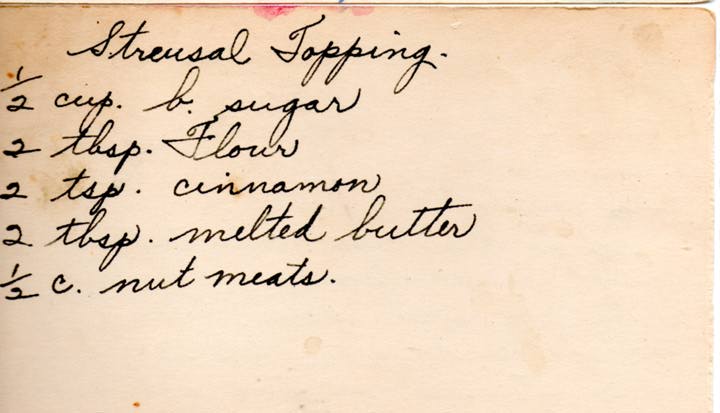 Streusal Topping.
1/2 cup. b. sugar
2 tbsp. Flour
2 tsp. cinnamon
2 tbsp. melted butter
1/2 c. nut meats.